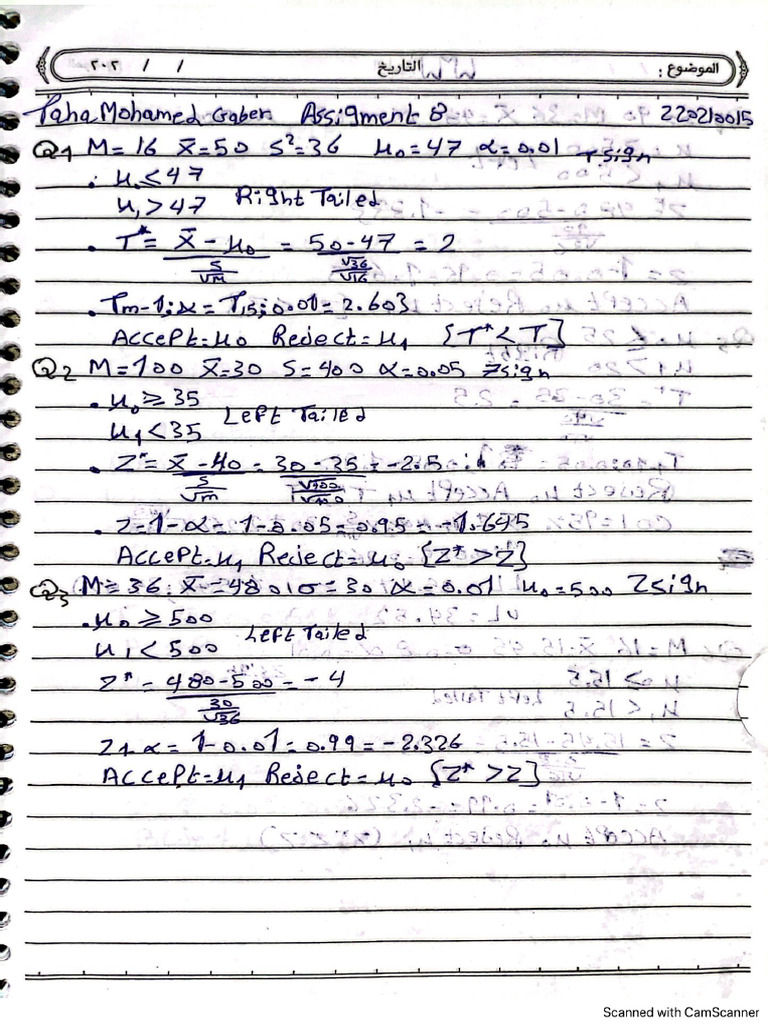 الموضوع : التاريخ / / ٢٠٢
Taha Mohamed Gaber Assigment 8 220210015
Q1 M= 16 x̄=50 S²=36 μ₀=47 α=0.01 T sign
. μ₀≤47
μ₁>47 Right Tailed
. T* = x̄ - μ₀ / S/√M = 50-47 / √36/√16 = 2
. Tm-1;α = T15;0.01 = 2.603
Accept=μ₀ Reject=μ₁ {T*<T}
Q2 M=100 x̄=30 S=400 α=0.05 Zsign
. μ₀≥35
μ₁<35 Left Tailed
. Z* = x̄ - μ₀ / S/√M = 30-35 / √400/√100 = -2.5
. Z=1-α=1-0.05=0.95=-1.645
Accept=μ₁ Reject=μ₀ {Z*>Z}
Q3 M=36 x̄=480 σ=30 α=0.01 μ₀=500 Zsign
.μ₀ ≥ 500
μ₁< 500 Left Tailed
Z* = 480-500 / 30/√36 = -4
Z1-α = 1-0.01=0.99=-2.326
Accept=μ₁ Reject=μ₀ {Z*>Z}
Scanned with CamScanner